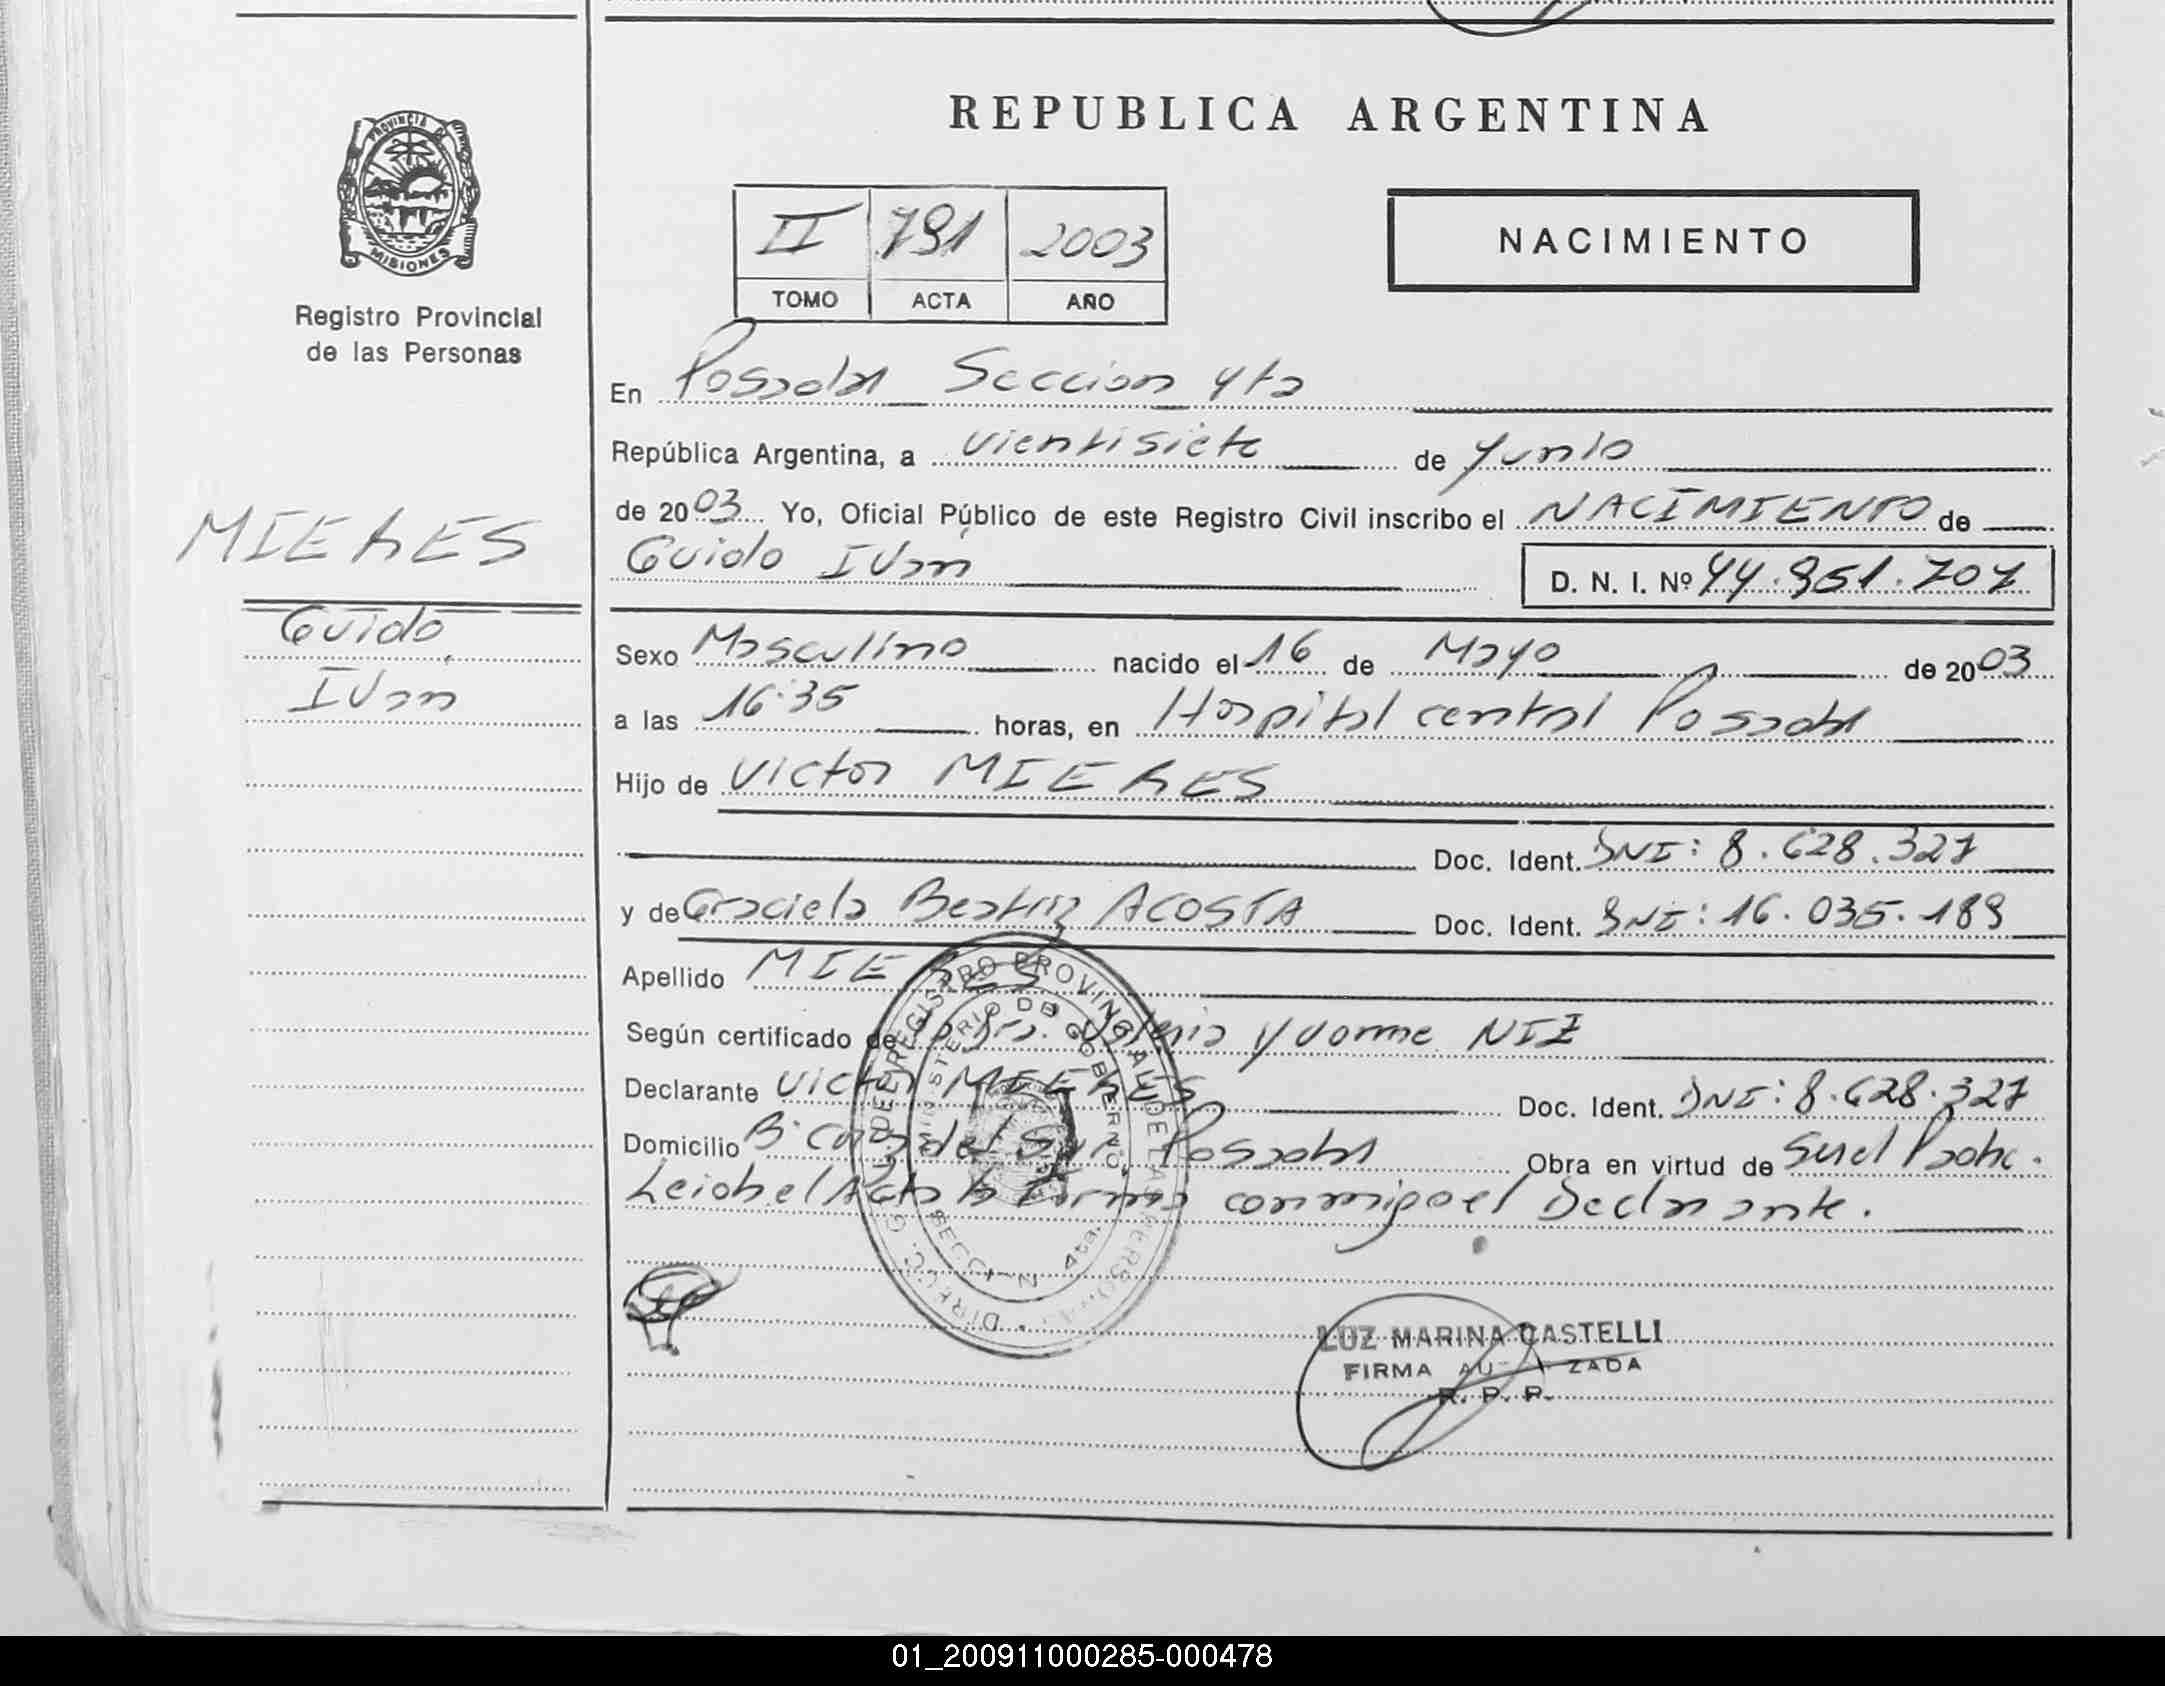 REPUBLICA ARGENTINA
PROVINCIA D
MISIONES
Registro Provincial
de las Personas
II 791 2003
TOMO ACTA AÑO
NACIMIENTO
En Posadas Seccion 4ta
República Argentina, a vientisiete de Junio
de 2003 Yo, Oficial Público de este Registro Civil inscribo el NACIMIENTO de
Guido Ivan D. N. I. Nº 44.951.707
MIERES
Guido
Ivan
Sexo Masculino nacido el 16 de Mayo de 2003
a las 16:35 horas, en Hospital central Posadas
Hijo de Victor MIERES
Doc. Ident. DNI: 8.628.327
y de Graciela Beatriz ACOSTA Doc. Ident. DNI: 16.035.189
Apellido MIERES
Según certificado de Valeria Yvonne NIZ
Declarante Victor MIERES Doc. Ident. DNI: 8.628.327
Domicilio Bº del Sur Posadas Obra en virtud de su el Padre.
Leida el Acta la Firma conmigo el Declarante.
DIRECC. GRAL. DEL REGISTRO PROVINCIAL DE LAS PERSONAS
MINISTERIO DE GOBIERNO
SECCION 4ta.
LUZ MARINA CASTELLI
FIRMA AUTORIZADA
R. P. P.
01_200911000285-000478